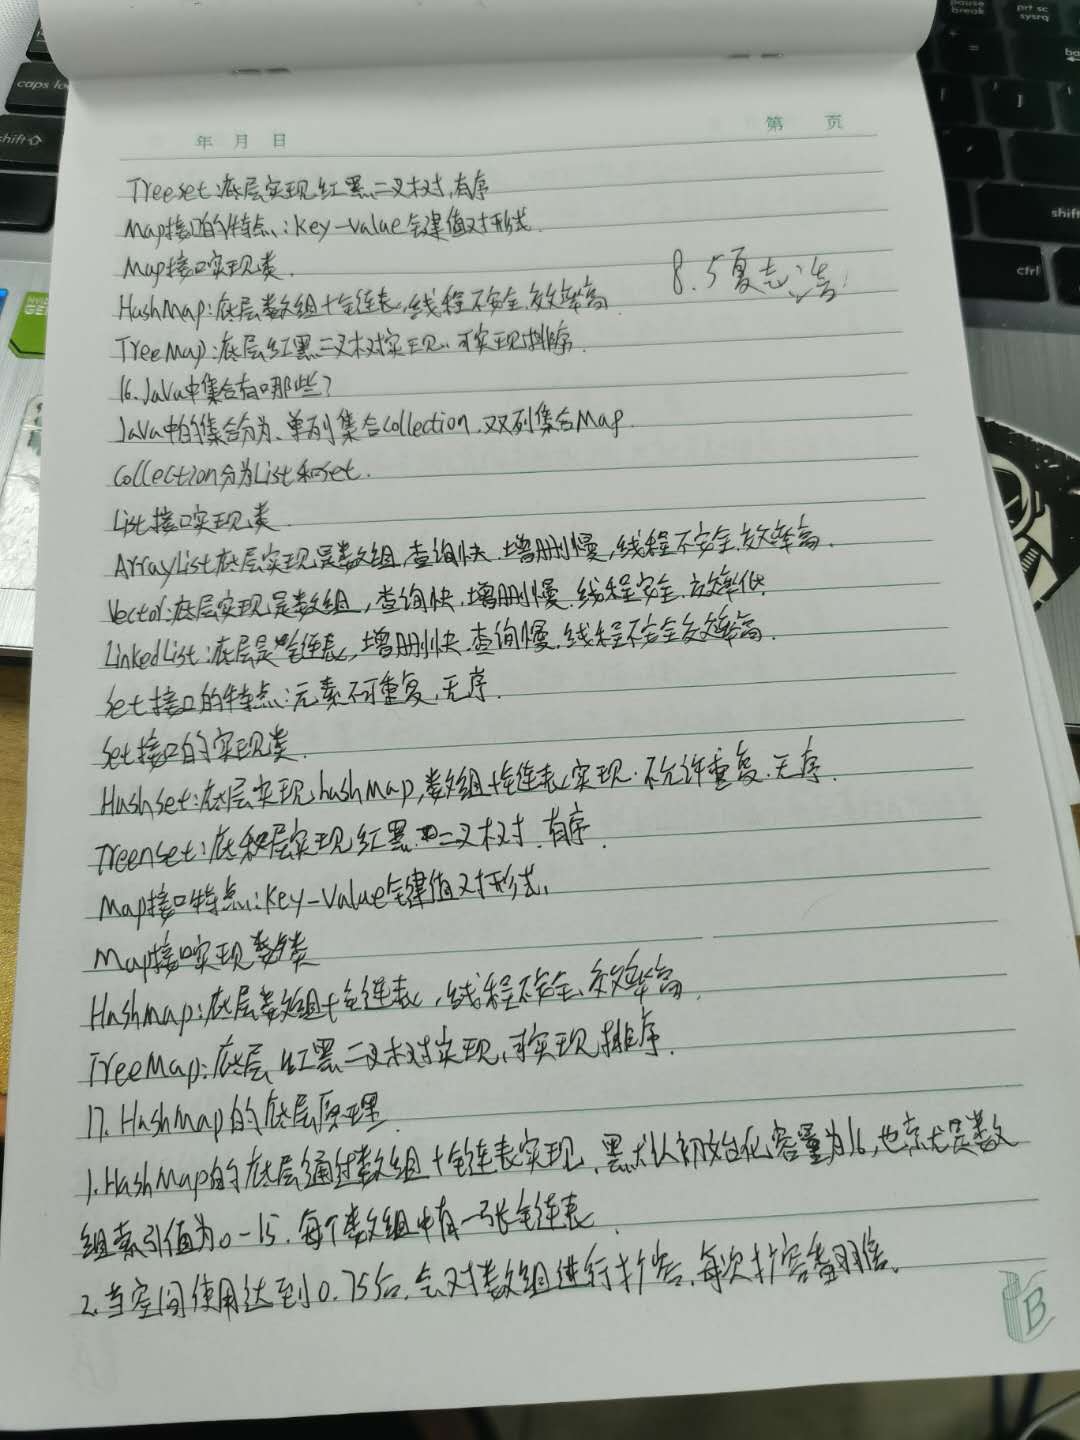 年 月 日
第 页
Treeset:底层实现红黑二叉树,有序
Map接口的特点:key-value键值对形式.
Map接口实现类.
8.5夏志浩
HashMap:底层数组+链表,线程不安全,效率高.
TreeMap:底层红黑二叉树实现,可实现排序.
16.Java中集合有哪些?
Java中的集合分为、单列集合collection.双列集合Map.
collection分为List和set.
List接口实现类
ArrayList底层实现是数组,查询快.增删慢,线程不安全.效率高.
Vector:底层实现是数组,查询快.增删慢.线程安全.效率低.
LinkedList:底层是链表,增删快.查询慢.线程不安全效率高.
set接口的特点:元素不可重复.无序.
set接口的实现类.
Hashset:底层实现hashMap,数组+链表实现.不允许重复.无序.
Treenset:底层实现红黑二叉树.有序.
Map接口特点:key-value键值对形式.
Map接口实现类
Hashmap:底层数组+链表,线程不安全、效率高.
TreeMap:底层红黑二叉树实现,可实现排序.
17.HashMap的底层原理.
1.HashMap的底层通过数组+链表实现,默认初始化容量为16,也就是数
组索引值为0-15.每个数组中有一张链表.
2.当空间使用达到0.75后,会对数组进行扩容,每次扩容翻倍.
caps lock
shift
pause
break
prt sc
sysrq
shift
ctrl
B